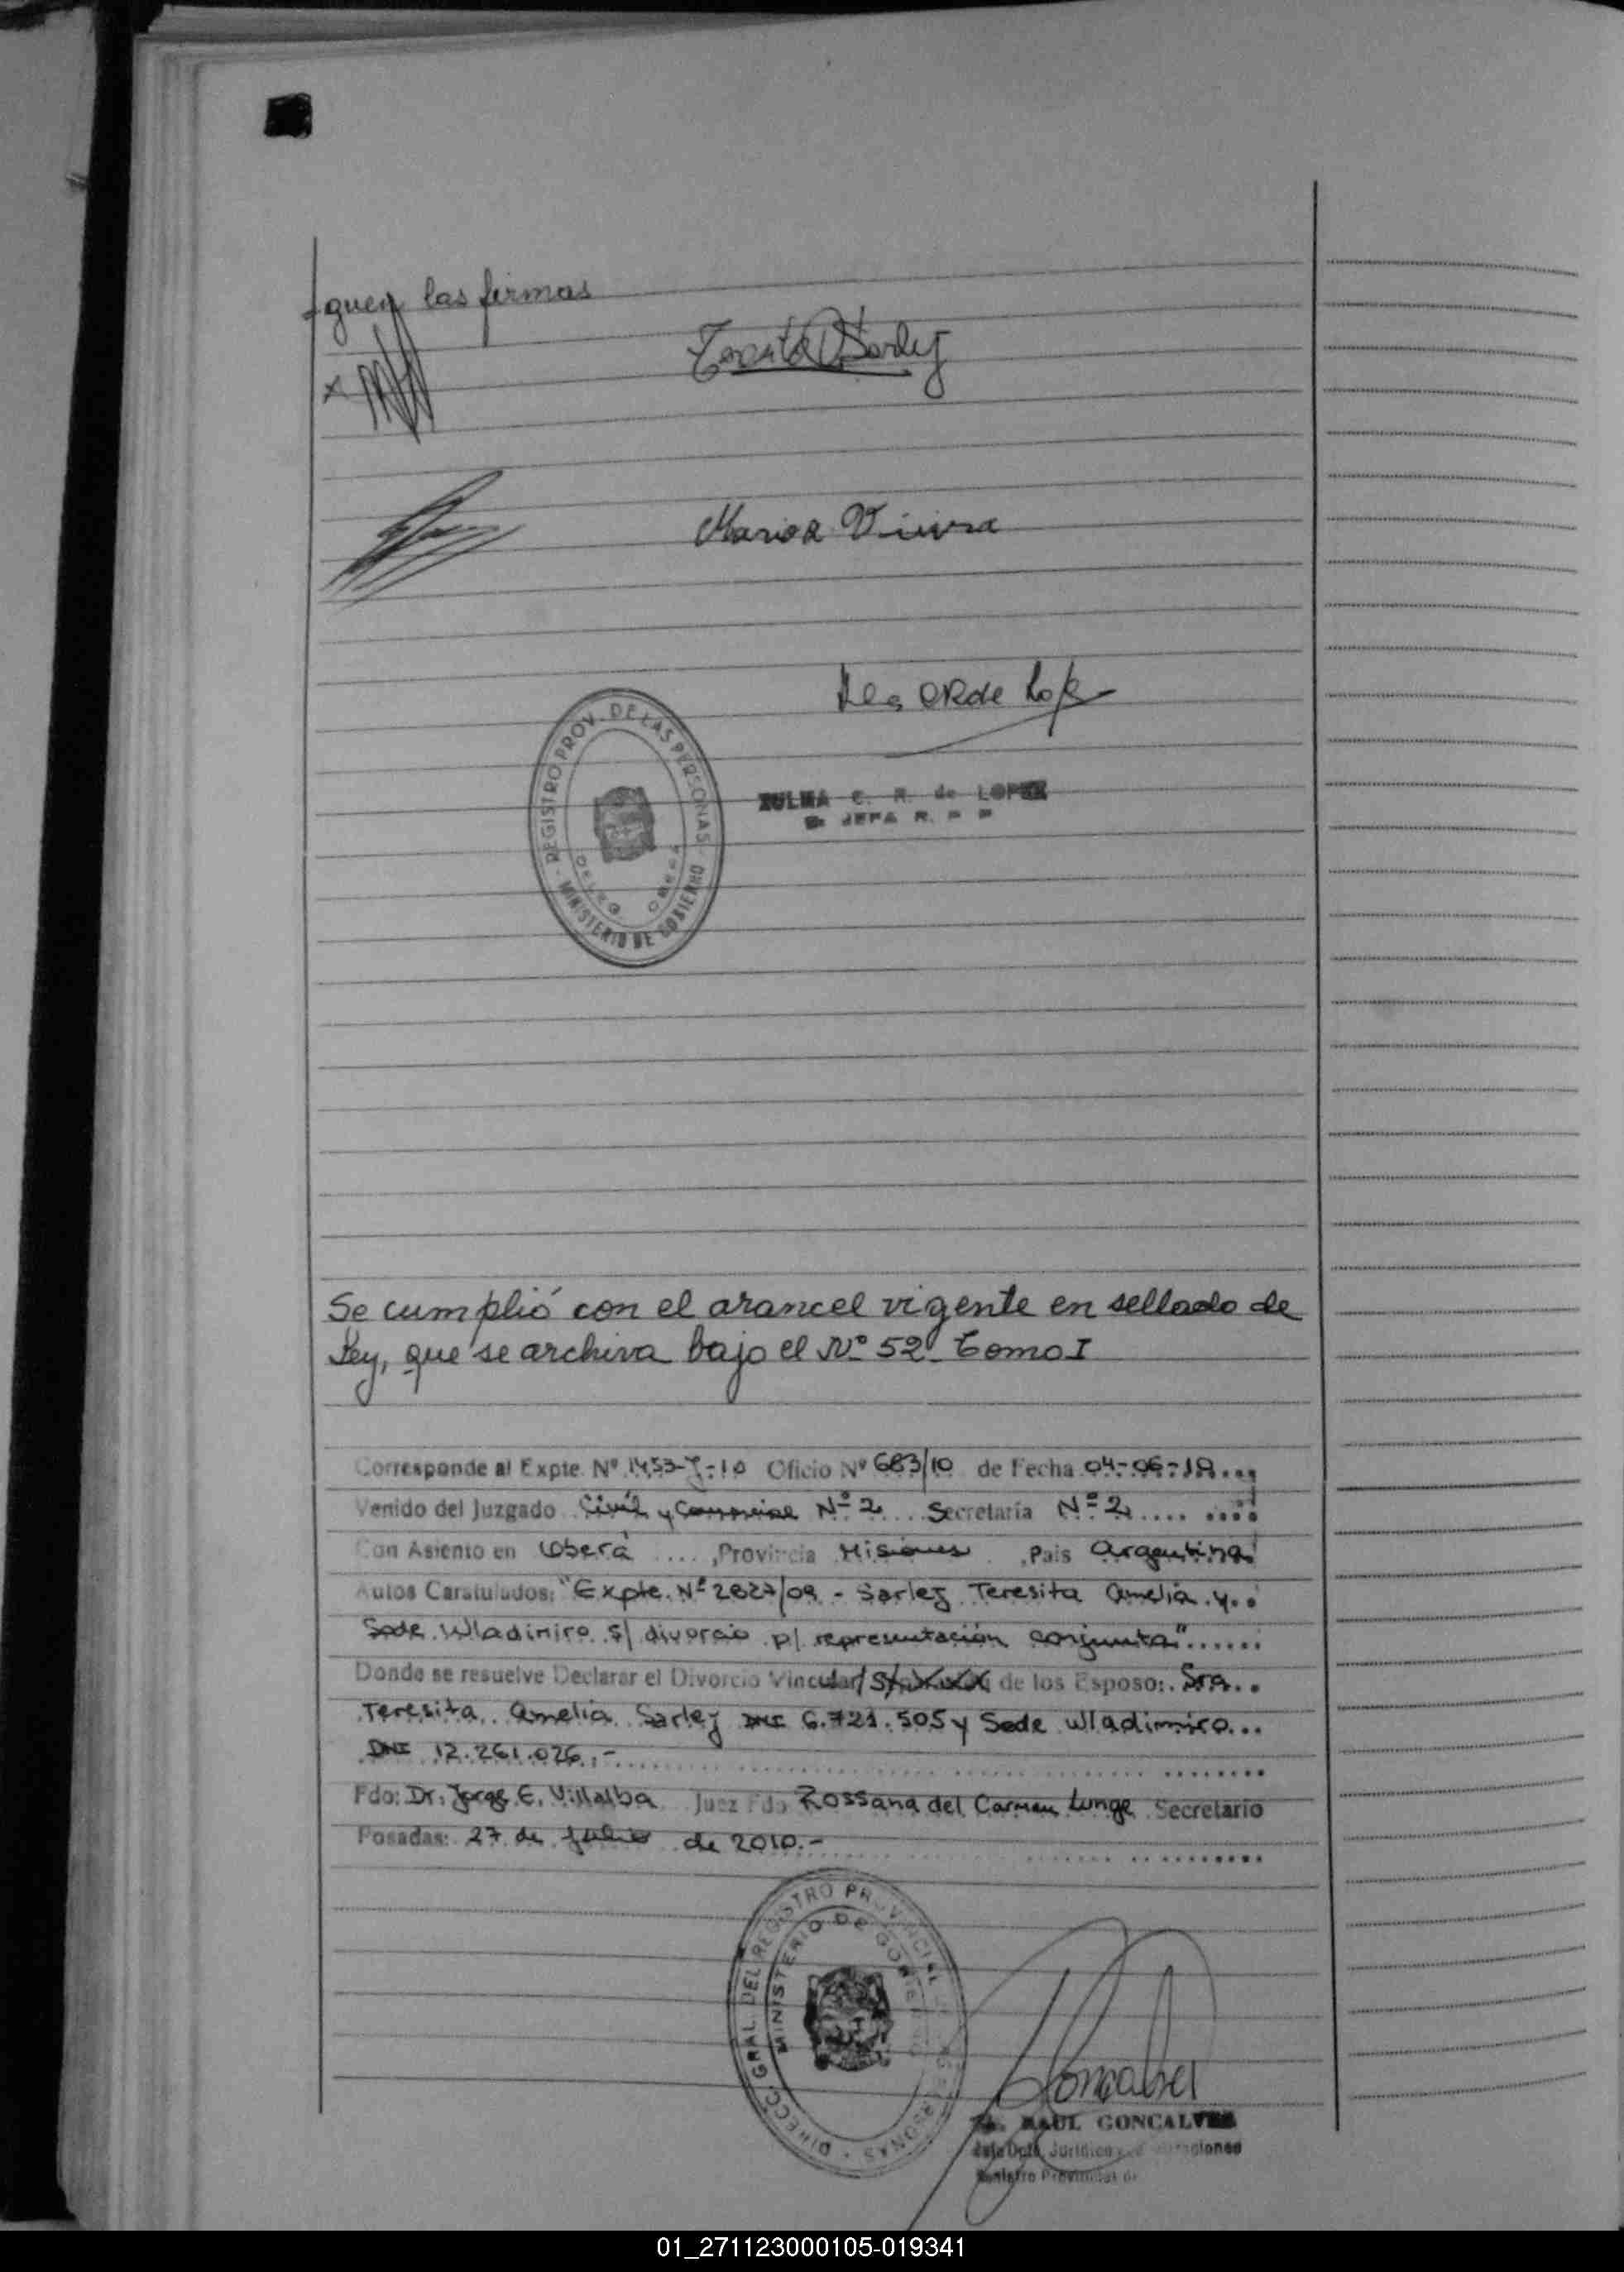 guen las firmas
Maria Vieira
REGISTRO PROV. DE LAS PERSONAS
MINISTERIO DE GOBIERNO
ZULMA C. R. de LOPEZ
JEFA R. P. P.
Se cumplió con el arancel vigente en sellado de
Ley, que se archiva bajo el Nº 52. Tomo I
Corresponde al Expte. Nº 1453-J-10 Oficio Nº 683/10 de Fecha 04-06-10....
Venido del Juzgado Civil y Comercial Nº 2 .... Secretaría Nº 2 ....
Con Asiento en Oberá ...., Provincia Misiones , Pais Argentina
Autos Caratulados: "Expte. Nº 2827/09 - Sarlej Teresita Amelia y..
Sode Wladimiro s/ divorcio p/ representación conjunta"......
Donde se resuelve Declarar el Divorcio Vincular/ de los Esposo: Sra..
Teresita Amelia Sarlej DNI 6.721.505 y Sode Wladimiro...
DNI 12.261.026.-
Fdo: Dr. Jorge E. Villalba Juez Fdo Rossana del Carmen Lunge Secretario
Posadas: 27 de Julio de 2010.-
DIRECC. GRAL. DEL REGISTRO PROVINCIAL DE LAS PERSONAS
MINISTERIO DE GOBIERNO
RAUL GONCALVES
Jefe Dpto. Jurídico
Registro Provincial de
01_271123000105-019341